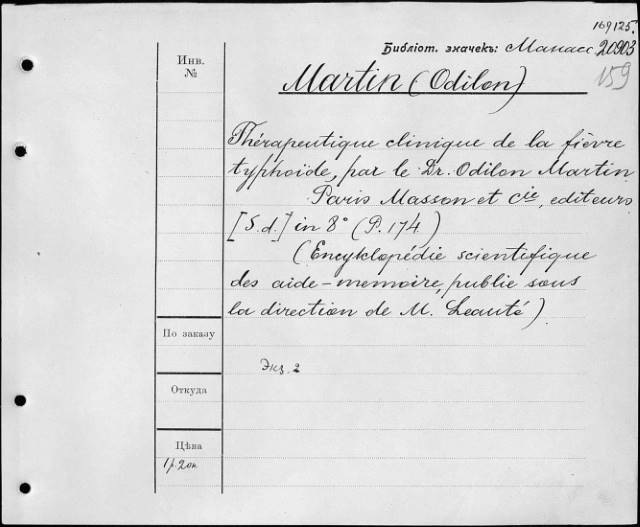 169125.
Библіот. значекъ: Манасс 20903
159
Инв.
№
Martin (Odilon)
Thérapeutique clinique de la fièvre
typhoïde, par le Dr. Odilon Martin
Paris Masson et Cie, editeurs
[S.d.] in 8° (P. 174)
(Encyklopédie scientifique
des aide-memoire, publie sous
la direction de M. Leauté)
По заказу
Экз. 2
Откуда
Цѣна
1 р. 20 к